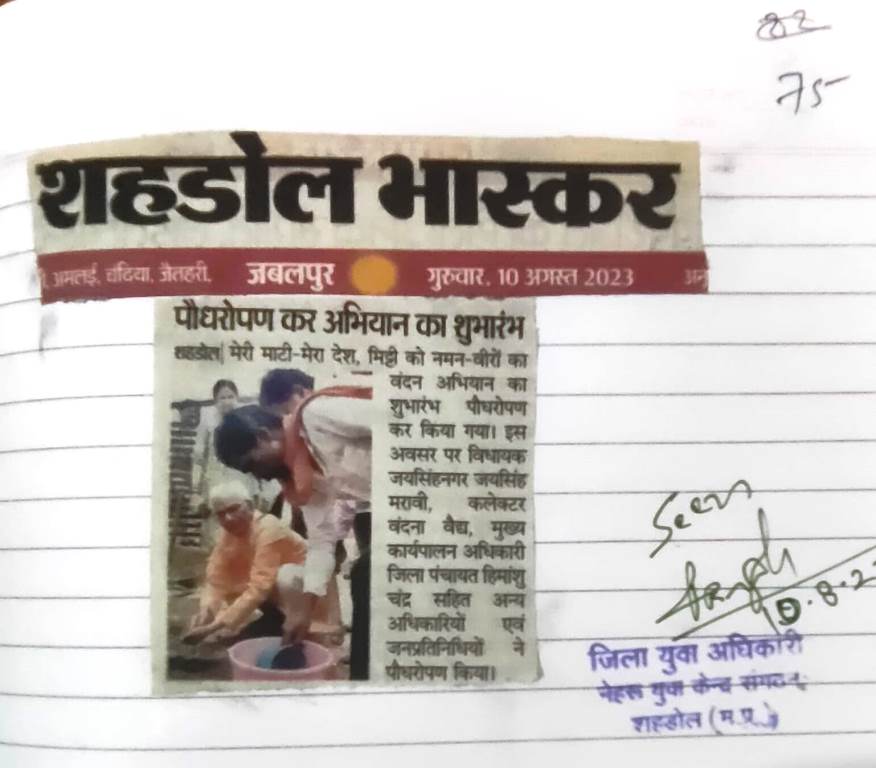 82
75
शहडोल भास्कर
अमलई, चंदिया, जैतहरी, जबलपुर गुरुवार, 10 अगस्त 2023
पौधरोपण कर अभियान का शुभारंभ
शहडोल| मेरी माटी-मेरा देश, मिट्टी को नमन-वीरों का
वंदन अभियान का
शुभारंभ पौधरोपण
कर किया गया। इस
अवसर पर विधायक
जयसिंहनगर जयसिंह
मरावी, कलेक्टर
वंदना वैद्य, मुख्य
कार्यपालन अधिकारी
जिला पंचायत हिमांशु
चंद्र सहित अन्य
अधिकारियों एवं
जनप्रतिनिधियों ने
पौधरोपण किया।
Seen
जिला युवा अधिकारी
नेहरू युवा केन्द्र संगठन
शहडोल (म.प्र.)